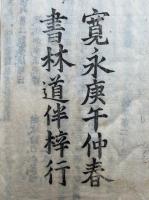 寛永庚午仲春
書林道伴梓行